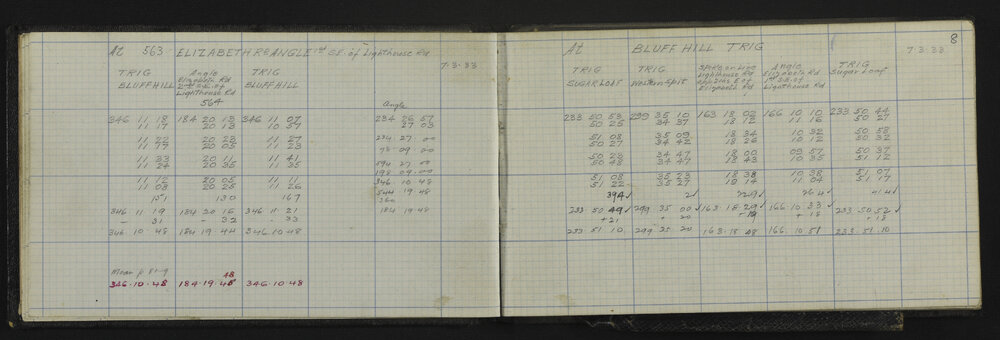 At 563 ELIZABETH RD ANGLE 1st S.E. of Lighthouse Rd
7-3-33
TRIG BLUFF HILL
Angle Elizabeth Rd 2nd S.E. of Lighthouse Rd 564
TRIG BLUFF HILL
Angle
346 11 18 184 20 13 346 11 07 234 26 57
11 17 20 13 10 57 27 03
20 23 11 27 234 27 00
20 05 11 23 72 09 00
11 23 20 11 11 41 594 27 00
11 24 20 35 11 35 198 09 00
11 12 20 05 11 11 346 10 48
11 08 20 25 11 26 544 19 48
151 130 167 360
346 11 19 184 20 16 346 11 21 184 19 48
- 31 - 32 - 33
346 10 48 184 19 44 346 10 48
Mean p
48
346.10.48 184.19.48 346.10.48
8
At BLUFF HILL TRIG
7-3-33
TRIG SUGAR LOAF
TRIG Western Spit
Angle Elizabeth Rd 1st S.E. of Lighthouse Rd
TRIG Sugar Loaf
233 50 53 299 35 10 163 18 02 166 10 10 233 50 44
50 25 34 37 18 12 11 16 50 27
51 08 35 09 18 34 10 32 50 58
50 27 34 42 18 26 10 12 50 32
50 23 34 47 18 00 09 57 50 37
50 48 34 47 18 43 10 35 51 12
51 08 35 23 18 38 10 38 51 07
51 22 35 27 19 14 11 04 51 17
394 ✓ 2 ✓ 229 ✓ 264 ✓ 414 ✓
233 50 49 ✓ 299 35 00 ✓ 163 18 29 ✓ 166 10 33 ✓ 233 50 52 ✓
+ 21 + 20 + 19 + 18 + 18
233 51 10 299 35 20 163 18 48 166 10 51 233 51 10